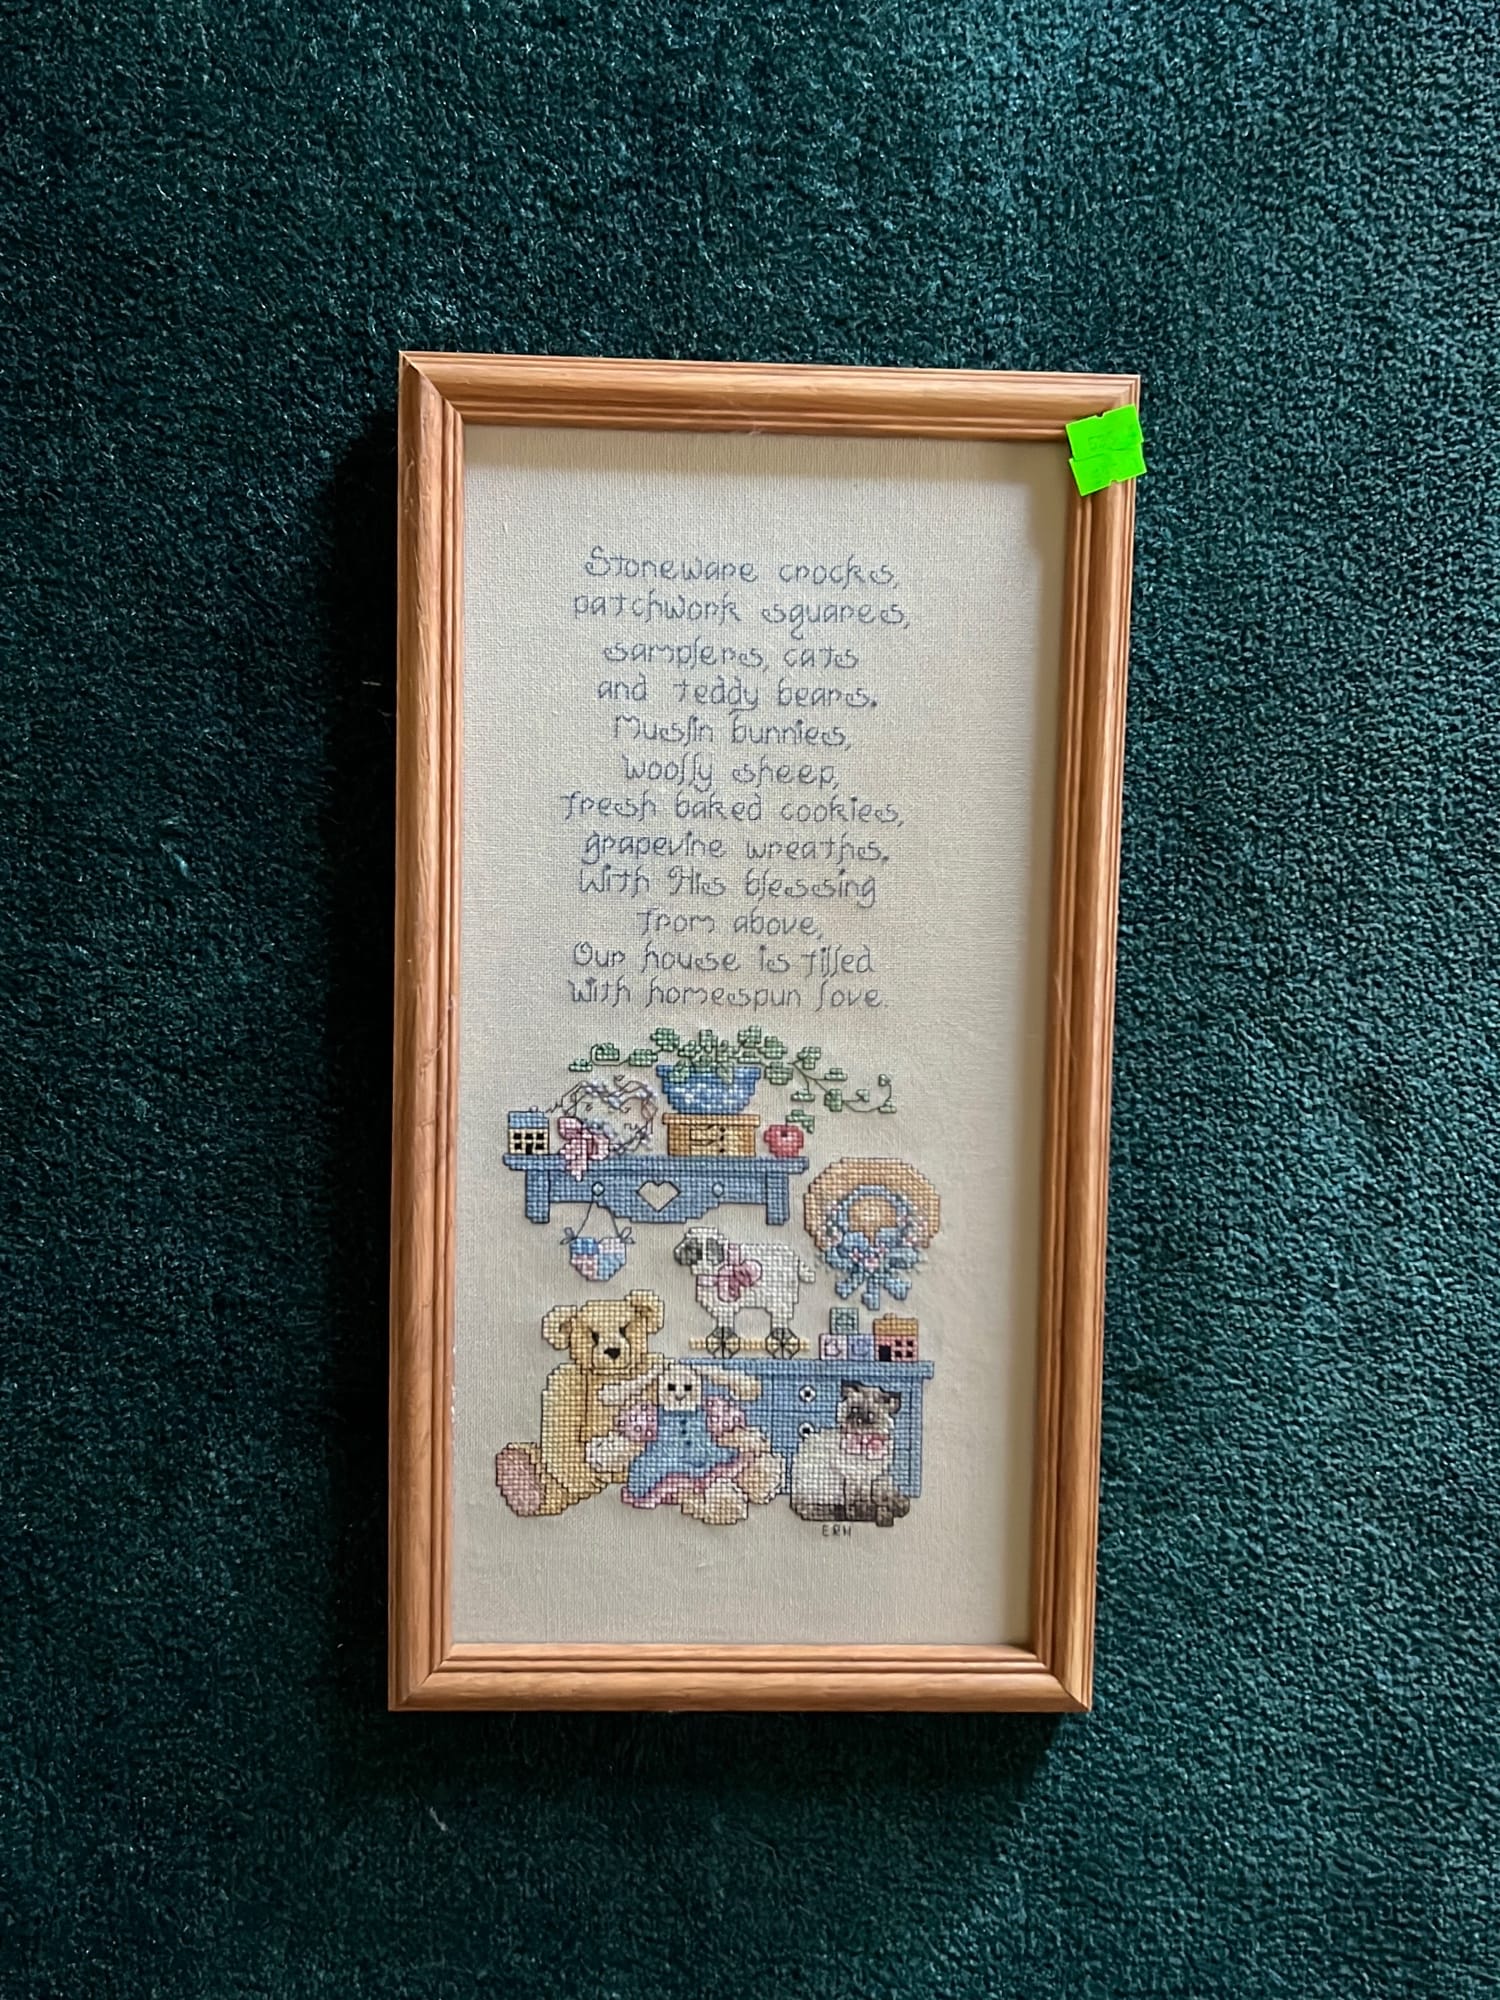 Stoneware crocks,
patchwork squares,
samplers, cats
and teddy bears.
Muslin bunnies,
woolly sheep,
fresh baked cookies,
grapevine wreaths.
With His blessing
from above,
Our house is filled
with homespun love.
ERH